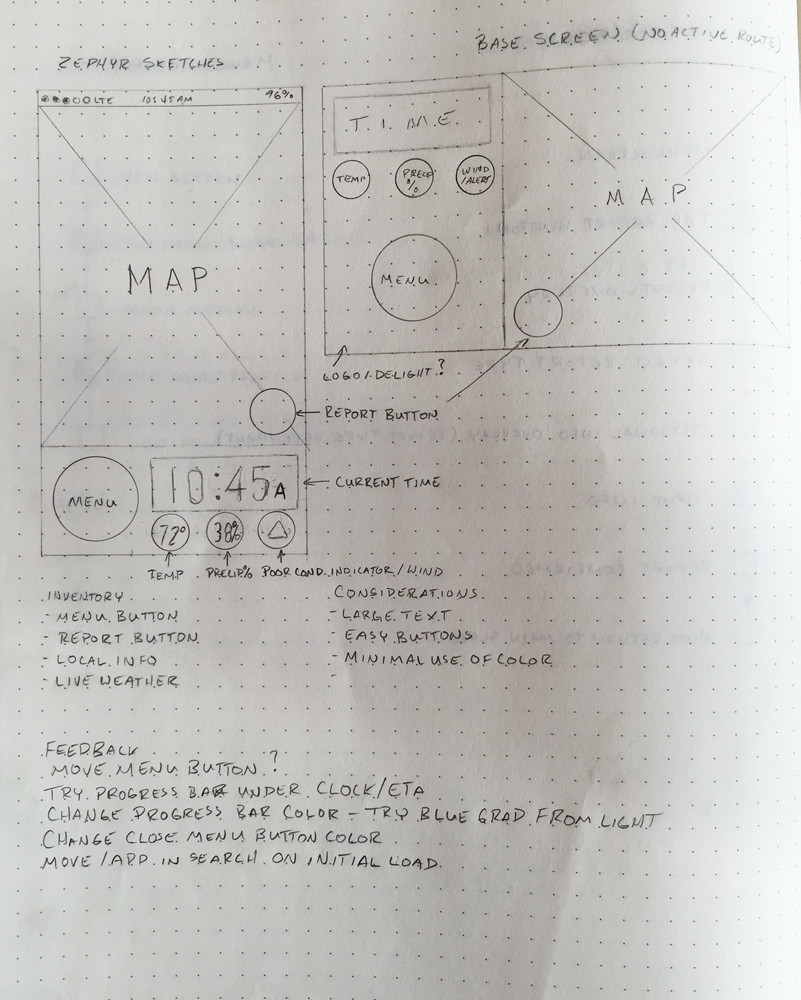 BASE SCREEN (NO ACTIVE ROUTE)
ZEPHYR SKETCHES
LTE 10:45AM 96%
MAP
MENU
10:45A
72° 38%
TEMP PRECIP% POOR COND. INDICATOR/WIND
TIME
TEMP PRECIP % WIND /ALERT
MENU
MAP
LOGO/DELIGHT?
REPORT BUTTON
CURRENT TIME
INVENTORY
- MENU BUTTON
- REPORT BUTTON
- LOCAL INFO
- LIVE WEATHER
CONSIDERATIONS
- LARGE TEXT
- EASY BUTTONS
- MINIMAL USE OF COLOR
-
FEEDBACK
MOVE MENU BUTTON?
TRY PROGRESS BAR UNDER CLOCK/ETA
CHANGE PROGRESS BAR COLOR - TRY BLUE GRAD FROM LIGHT
CHANGE CLOSE MENU BUTTON COLOR
MOVE/APP IN SEARCH ON INITIAL LOAD.